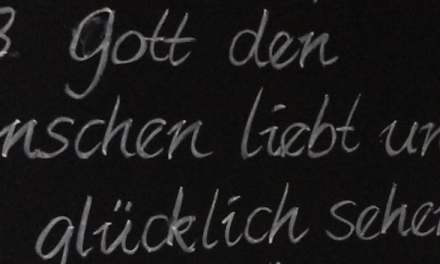 ß Gott den
nschen liebt un
glücklich sehe